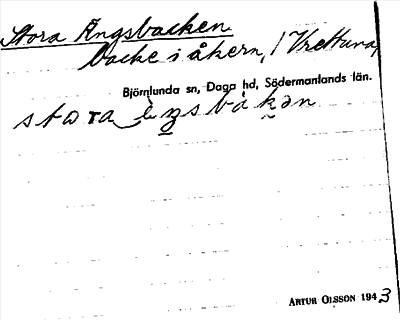 Stora Ängsbacken
backe i åkern, / Vrettuna,
Björnlunda sn, Daga hd, Södermanlands län.
stora
ARTUR OLSSON 1943